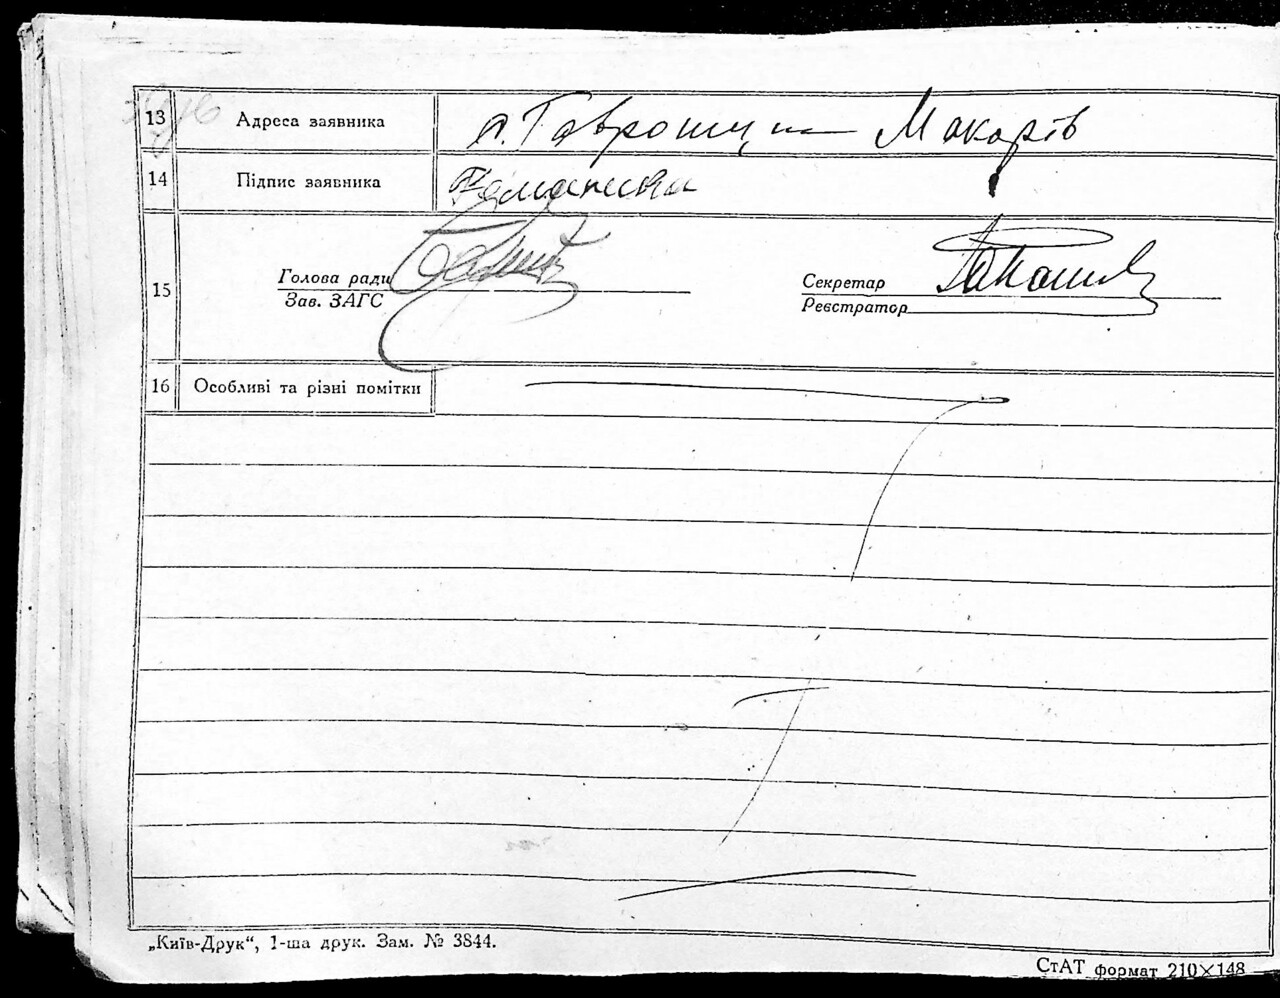 13 Адреса заявника с. Гавронщина Макарів
14 Підпис заявника
15 Голова ради
Зав. ЗАГС
Секретар
Реєстратор
16 Особливі та різні помітки
„Київ-Друк“, 1-ша друк. Зам. № 3844.
СтАТ формат 210×148